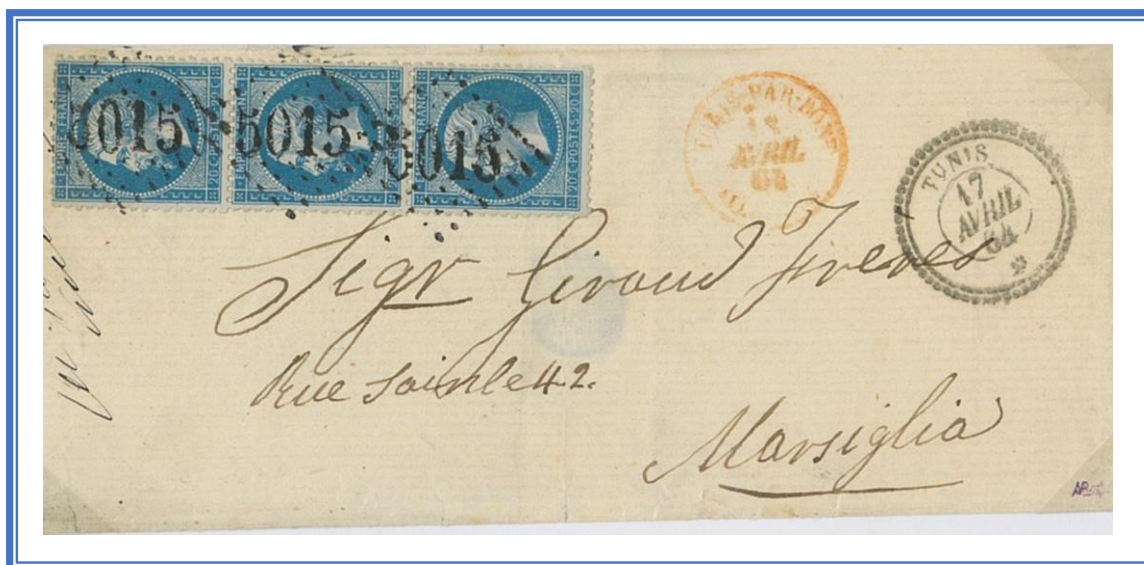 5015 5015 5015
AVRIL
64
TUNIS
17
AVRIL
64
Sigr Giraud Freres
Rue Sainte 42.
Marsiglia